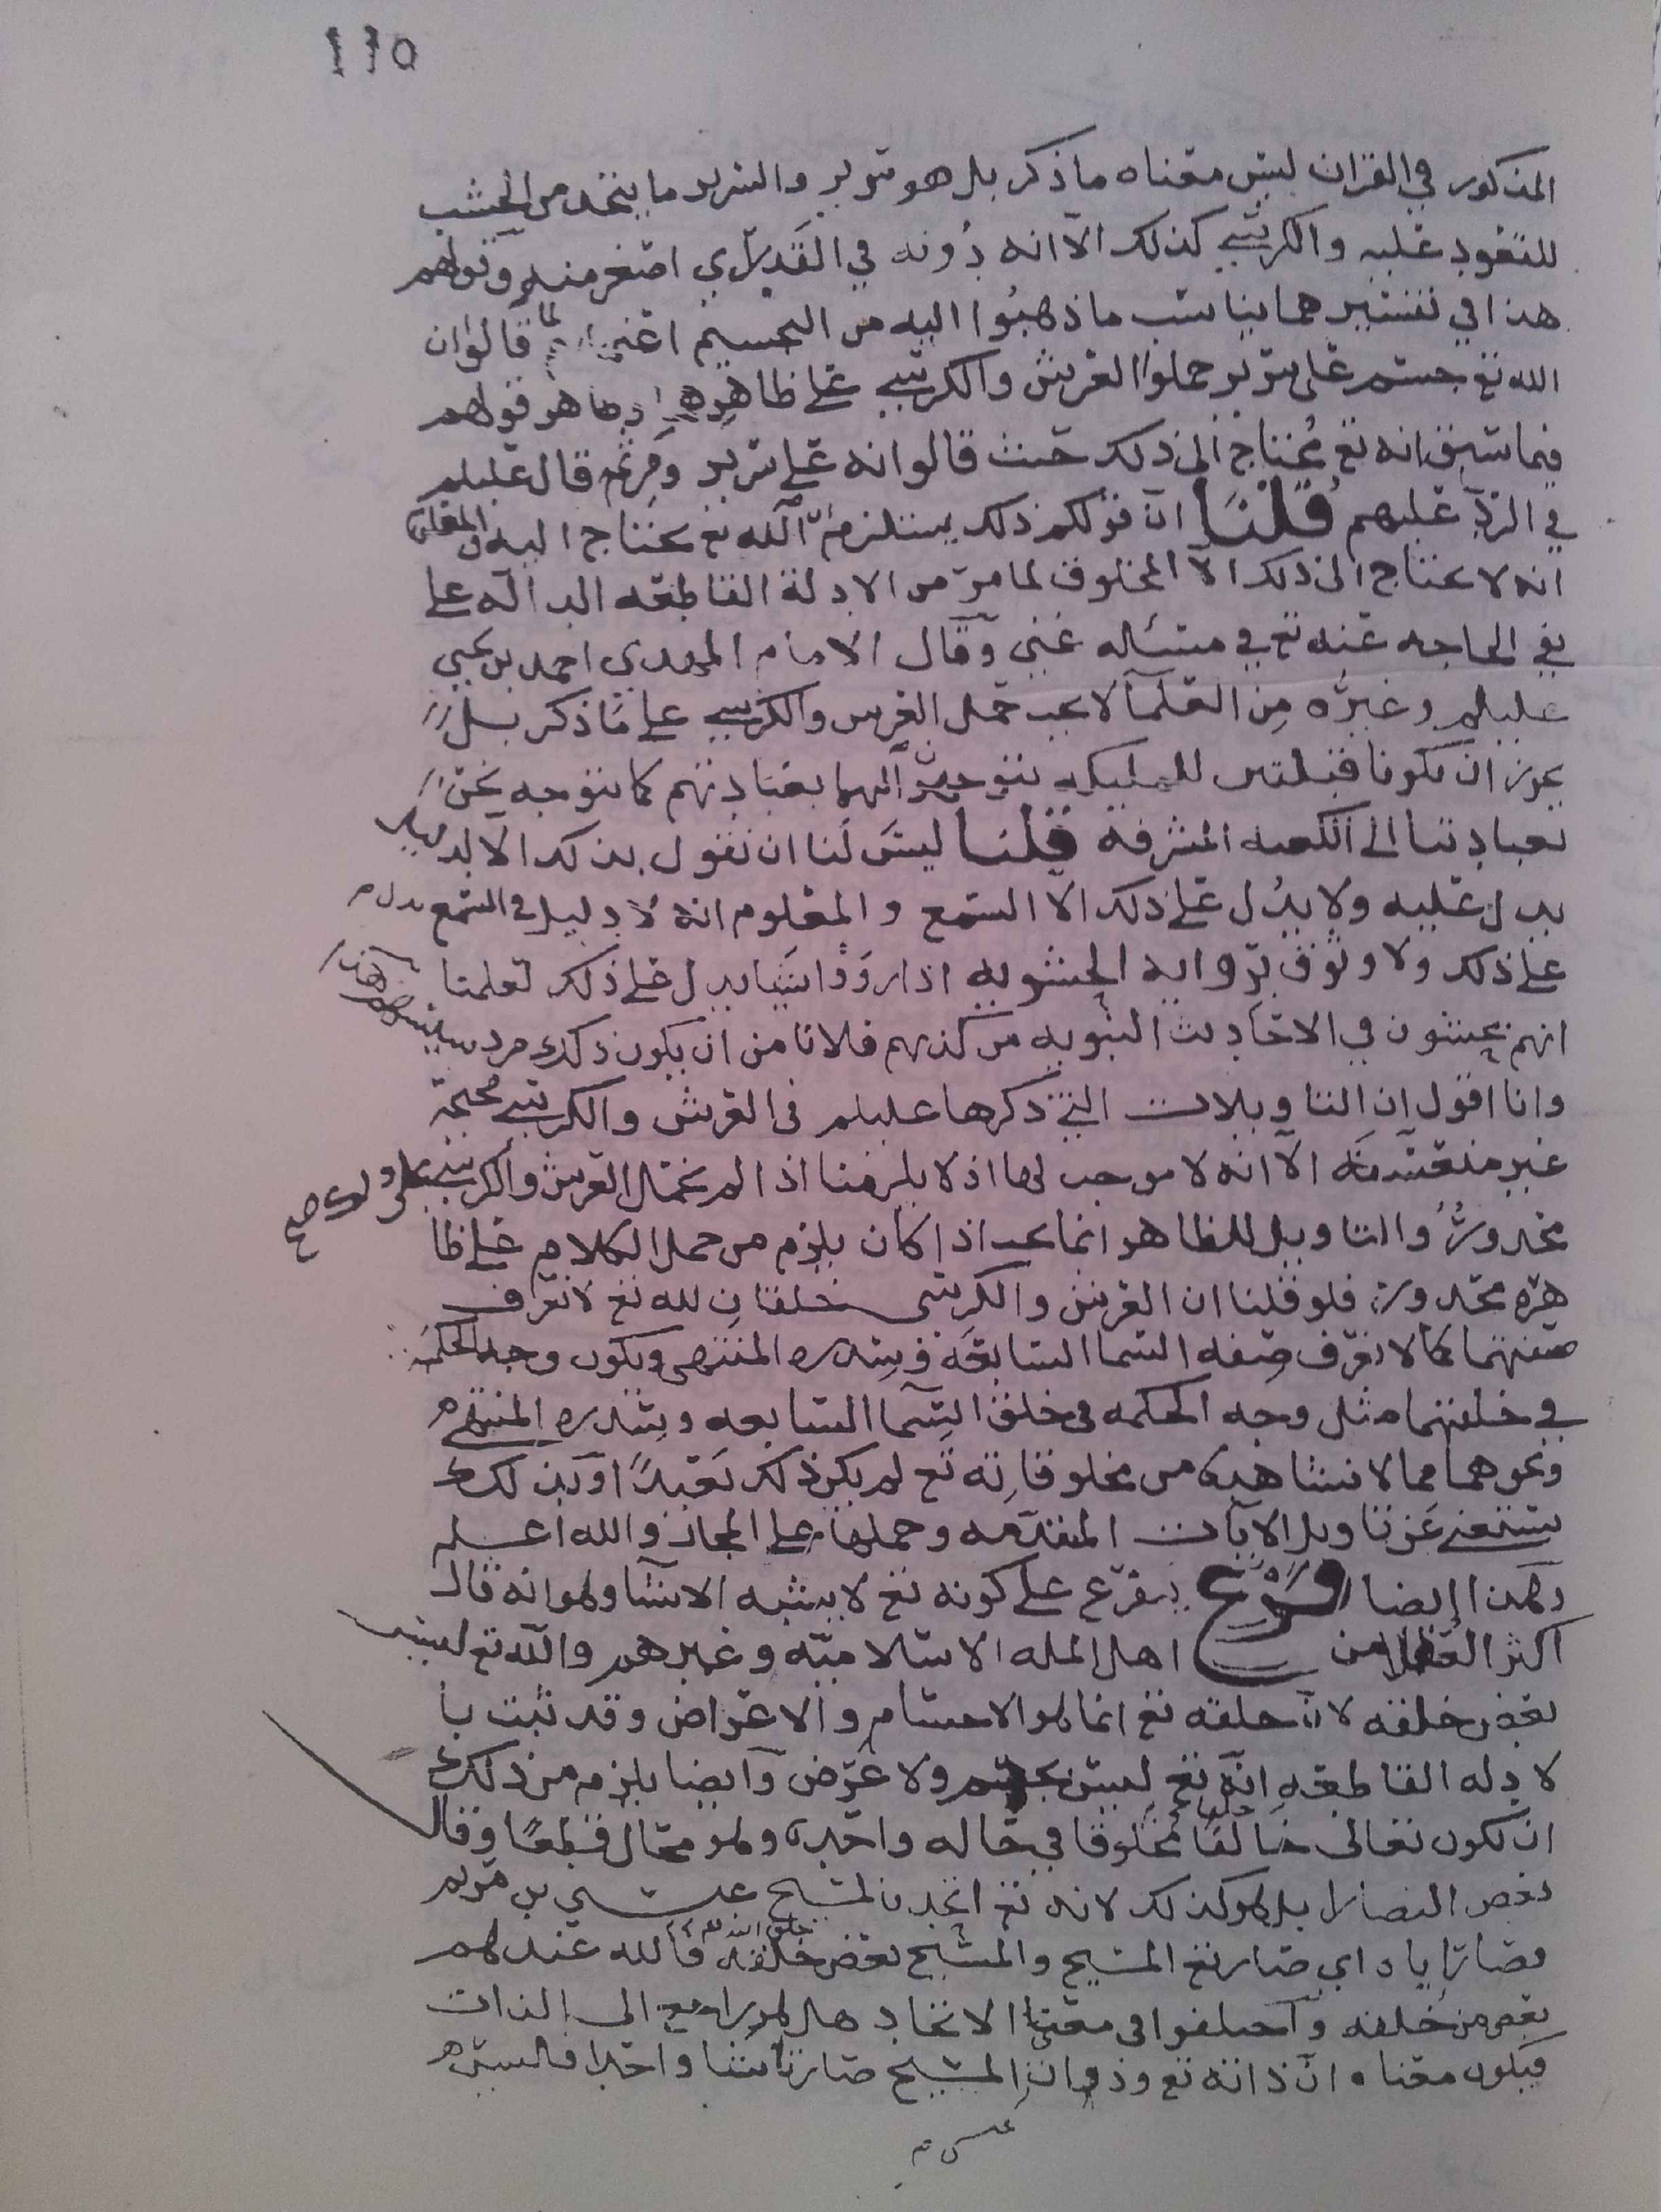 ١١٥
المذكور في القران ليس معناه ما ذكر بل هو سرير والسرير ما يتخذ من الخشب
للقعود عليه والكرسي كذلك الا انه دونه في القدر اي اصغر منه وقولهم
هذا في تفسيرهما يناسب ما ذهبوا اليه من التجسيم اعني لما قالوا ان
الله تع جسم على سرير حملوا العرش والكرسي على ظاهرهما كما هو قولهم
فيما سبق انه تع محتاج الى ذلك حيث قالوا انه على سرير ومن ثم قال عليلم
في الرد عليهم قلنا ان قولكم ذلك يستلزم ان الله تع يحتاج اليه والمعلوم
انه لا يحتاج الى ذلك الا المخلوق لما مر من الادلة القاطعه الدالة على
نفي الحاجه عنه تع في مسئلة غني وقال الامام المهدي احمد بن يحيى
عليلم وغيره من العلمآ لا يجب حمل العرش والكرسي على ما ذكر بل
يجوز ان يكونا قبلتين للمليكه يتوجهون اليهما بعبادتهم كما نتوجه نحن
بعبادتنا الى الكعبه المشرفة قلنا ليس لنا ان نقول بذلك الا لدليل
يدل عليه ولا يدل على ذلك الا السمع والمعلوم انه لا دليل في السمع يدل
على ذلك ولا وثوق برواية الحشويه اذا رووا شيا يدل على ذلك لعلمنا
انهم يحشون في الاحاديث النبويه من كذبهم فلا نامن ان يكون ذلك من
وانا اقول ان التاويلات التي ذكرها عليلم في العرش والكرسي صحيحة
غير متعسفه الا انه لا موجب لها اذ لا يلزمنا اذا لم نحمل العرش والكرسي على ذلك صح
محذور والتاويل للظاهر انما يجب اذا كان يلزم من حمل الكلام على ظا
هره محذور فلو قلنا ان العرش والكرسي خلقان لله تع لا نعرف
صفتهما كما لا نعرف صفه السما السابعه وسدره المنتهى ويكون وجه الحكمة
في خلقهما مثل وجه الحكمه في خلق السما السابعه وسدره المنتهى
ونحوهما مما لا نشاهده من مخلوقاته تع لم يكن ذلك بعيدا وبذلك
يستغنى عن تاويل الايات المتقدمه وحملها على المجاز والله اعلم
وهذا ايضا فرع يتفرع على كونه تع لا يشبه الاشيا وهو انه قال
اكثر العقلا من اهل المله الاسلاميه وغيرهم والله تع ليس
بعض خلقه لان خلقه تع انما هو الاجسام والاعراض وقد ثبت با
لا دله القاطعه انه تع ليس بجسم ولا عرض وايضا يلزم من ذلك
ان يكون تعالى خالقا مخلوقا في حاله واحده وهو محال قطعا وقال
بعض النصارا بل هو كذلك لانه تع اتحد بالمسيح عيسى بن مريم
فصار اياه اي صار تع المسيح والمسيح بعض خلقه فالله عندهم
بعض من خلقه واختلفوا في معنى الاتحاد هل هو راجع الى الذات
فيكون معناه ان ذاته تع وذات المسيح صارتا شيا واحدا فالمسيح